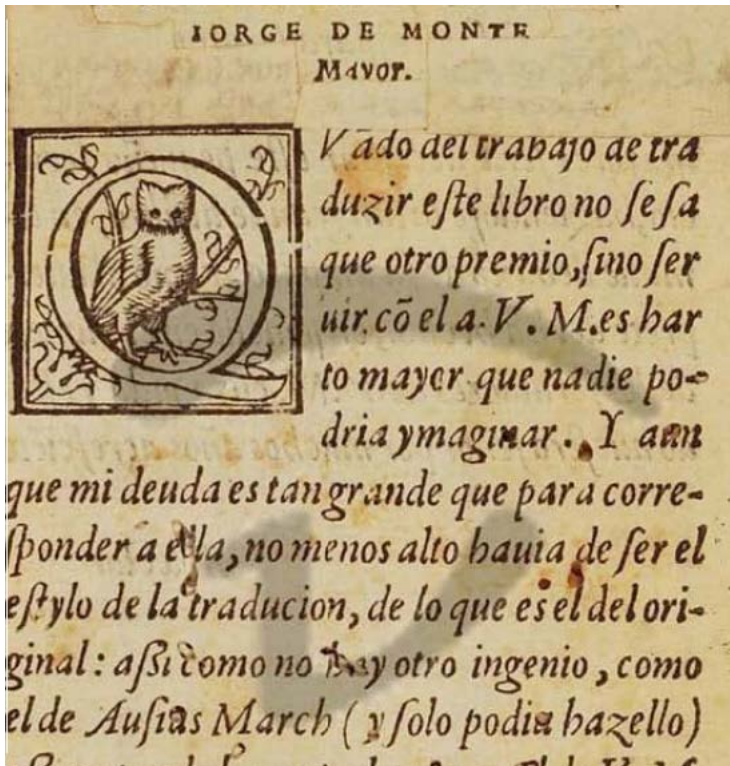 IORGE DE MONTE
Mayor.
QVãdo del trabajo de tra
duzir eſte libro no ſe ſa
que otro premio, ſino ſer
uir cõ el a. V. M. es har
to mayor que nadie po-
dria ymaginar. Y aun
que mi deuda es tan grande que para corre-
ſponder a ella, no menos alto hauia de ſer el
eſtylo de la traducion, de lo que es el del ori-
ginal: aſsi como no hay otro ingenio, como
el de Auſias March (y ſolo podia hazello)